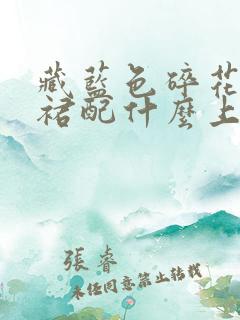 藏藍色碎花
裙配什麼上
張睿
未任同意禁止转载